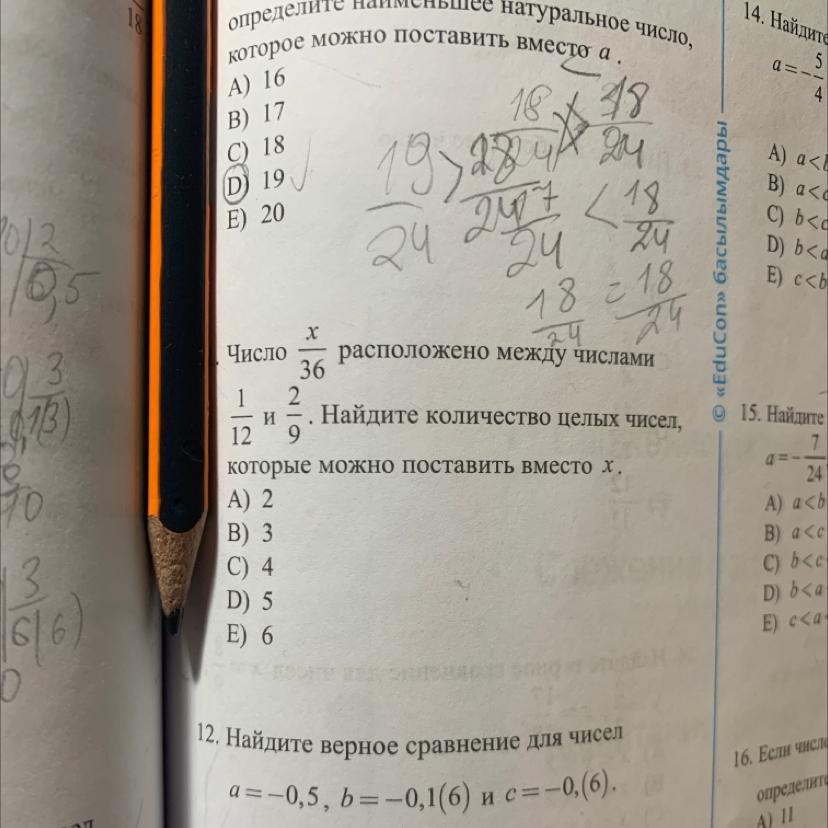 18
определите наименьшее натуральное число,
которое можно поставить вместо a.
A) 16
B) 17
C) 18
D) 19
E) 20
19/24 >
18/24
< 18/24
18/24 = 18/24
Число x/36 расположено между числами
1/12 и 2/9. Найдите количество целых чисел,
которые можно поставить вместо x.
A) 2
B) 3
C) 4
D) 5
E) 6
12. Найдите верное сравнение для чисел
a=−0,5, b=−0,1(6) и c=−0,(6).
© «EduCon» басылымдары
14. Найдите
a=−5/4
A) a<b
B) a<c
C) b<c
D) b<a
E) c<b
15. Найдите
a=−7/24
A) a<b
B) a<c
C) b<c
D) b<a
E) c<a
16. Если число
определите
A) 11